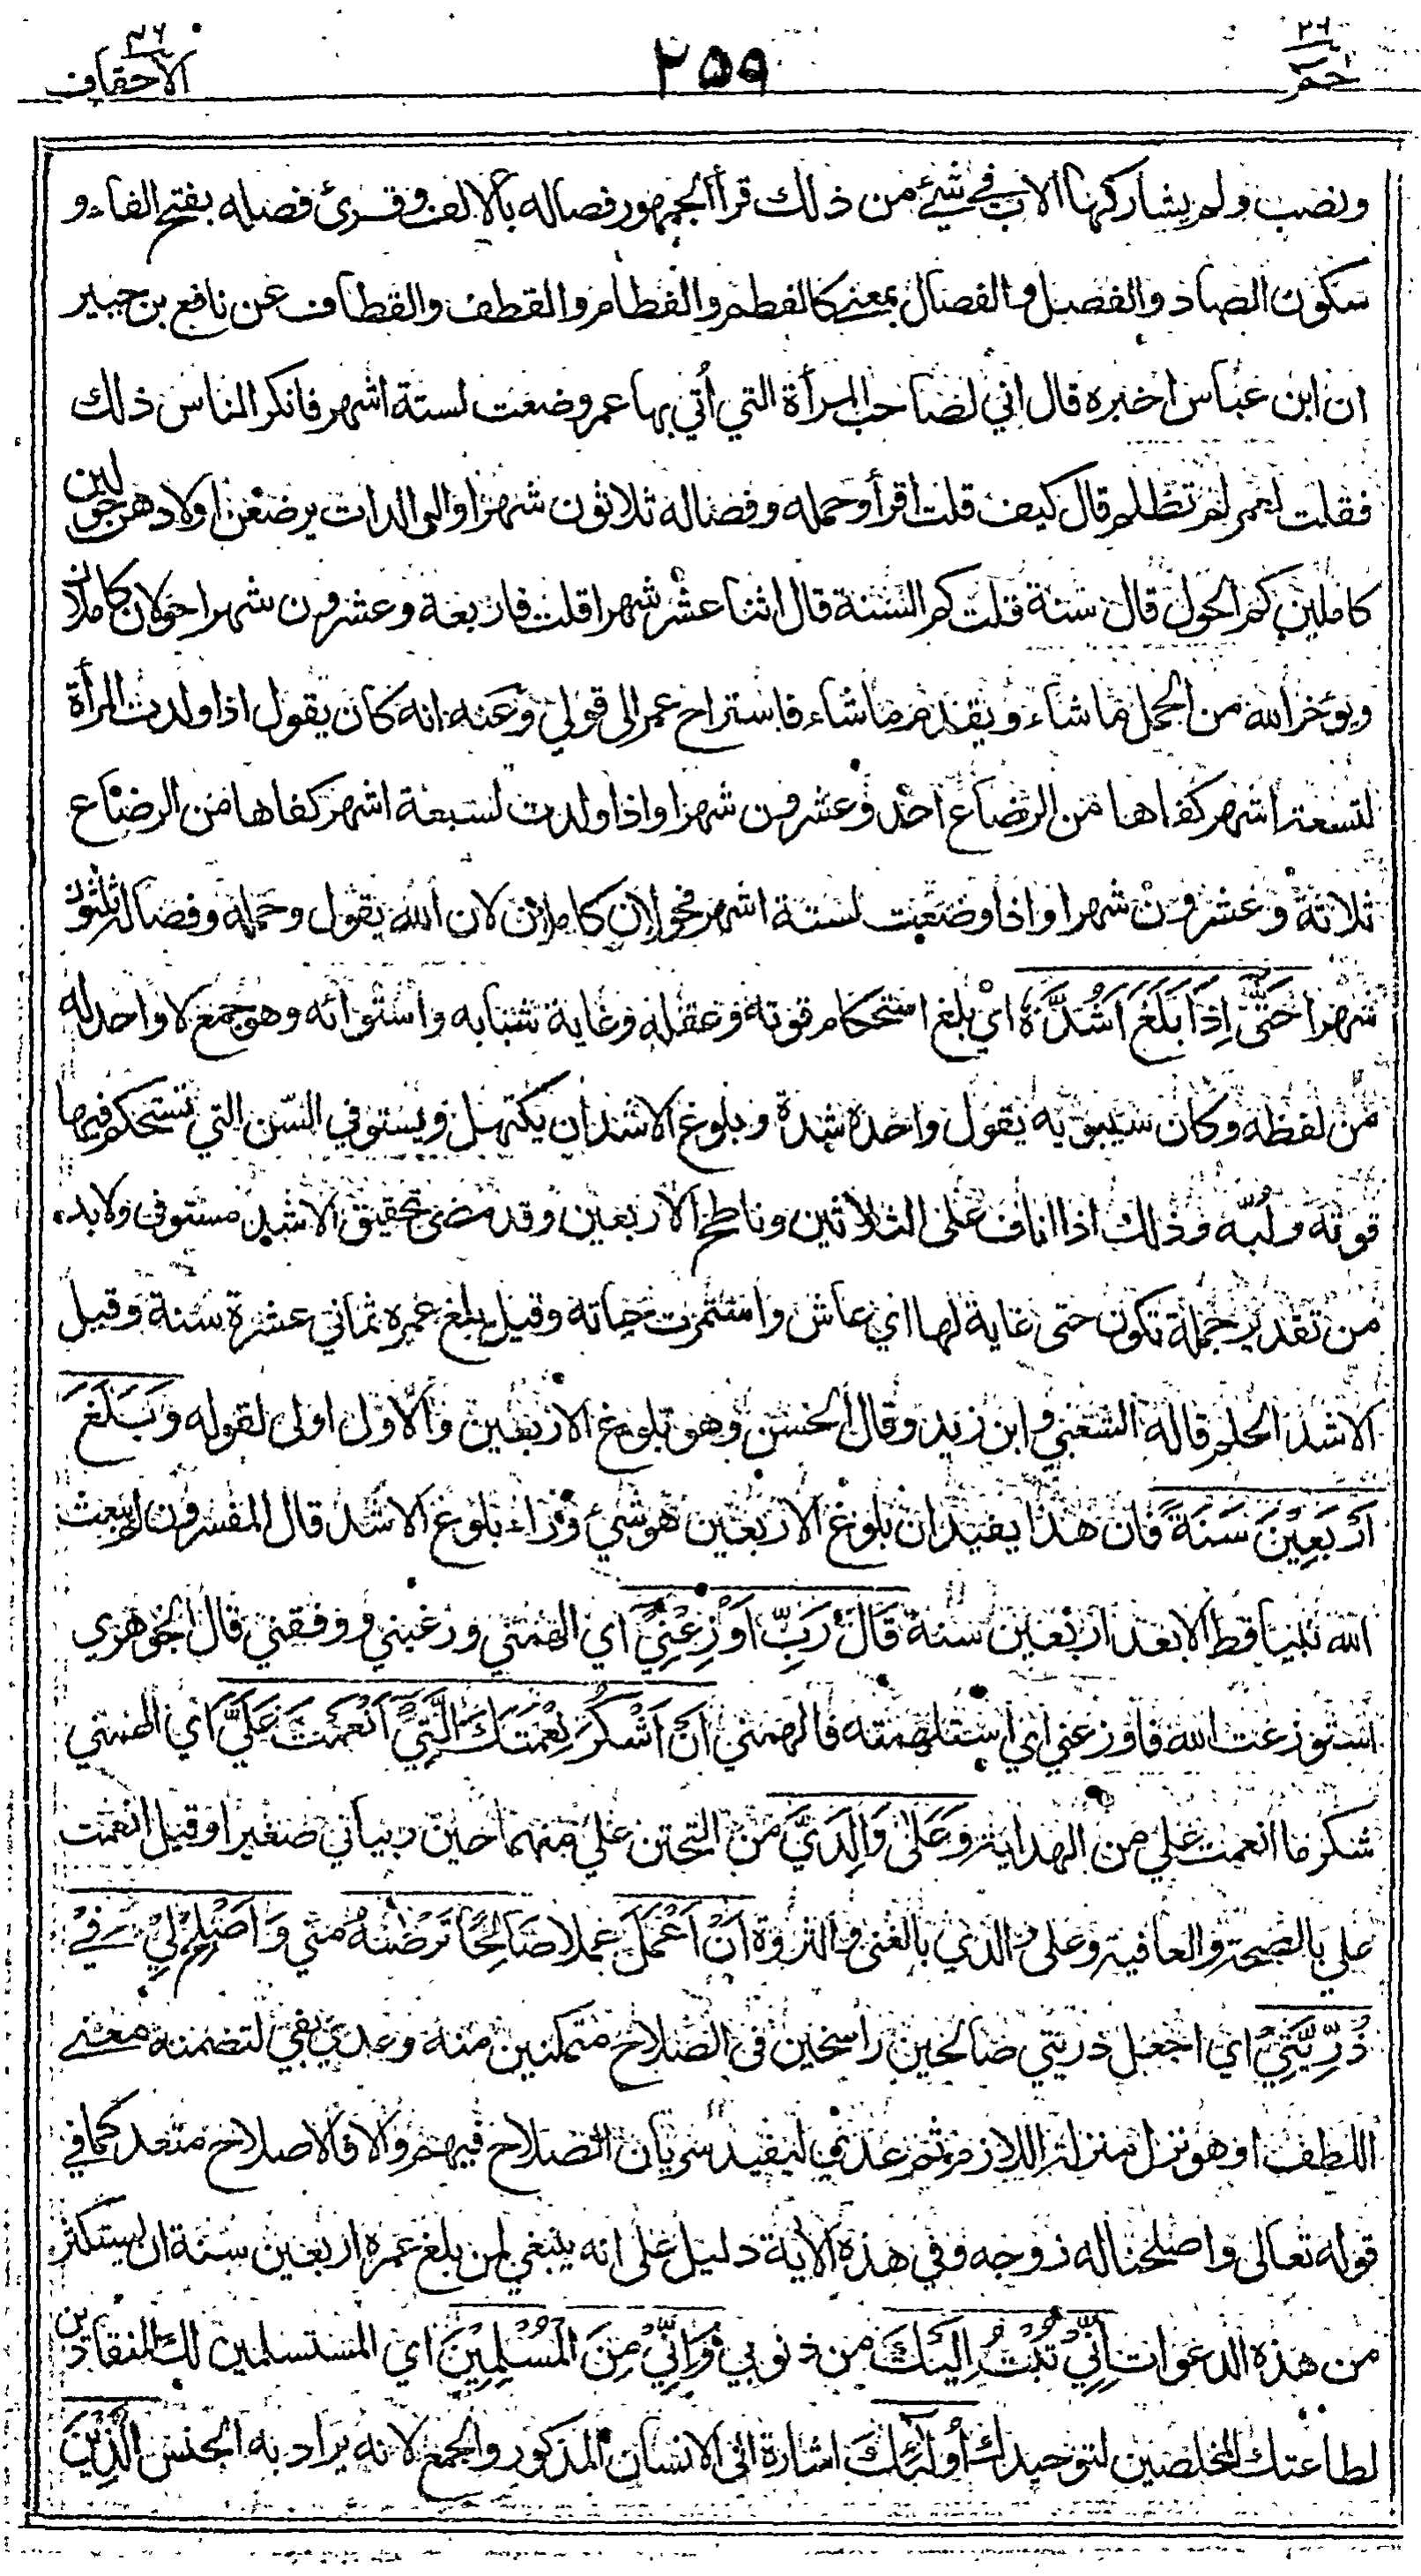 حم ٢٦
٢٥٩
الاحقاف ٤٦
ونصب ولم يشاركها الاب في شئ من ذلك قرأ الجمهور فصاله بالالف وقرئ فصله بفتح الفاء و
سكون الصاد والفصل والفصال بمعنى كالفطم والفطام والقطف والقطاف عن نافع بن جبير
ان ابن عباس اخبره قال اني لصاحب المرأة التي أتي بها عمر وضعت لستة اشهر فانكر الناس ذلك
فقلت لعمر لم تظلم قال كيف قلت اقرأ وحمله وفصاله ثلاثون شهرا والوالدات يرضعن اولادهن حولين
كاملين كم الحول قال سنة قلت كم السنة قال اثنا عشر شهرا قلت فاربعة وعشرون شهرا حولان كاملان
ويؤخر الله من الحمل ما شاء ويقدم ما شاء فاستراح عمر الى قولي وعنه انه كان يقول اذا ولدت المرأة
لتسعة اشهر كفاها من الرضاع احد وعشرون شهرا واذا ولدت لسبعة اشهر كفاها من الرضاع
ثلاثة وعشرون شهرا واذا وضعت لستة اشهر فحولان كاملان لان الله يقول وحمله وفصاله ثلثون
شهرا حَتّٰى اِذَا بَلَغَ اَشُدَّهٗ اي بلغ استحكام قوته وعقله وغاية شبابه واستوائه وهو جمع لا واحد له
من لفظه وكان سيبويه يقول واحده شدة وبلوغ الاشد ان يكتهل ويستوفي السن التي تستحكم فيها
قوته ولُبّه وذلك اذا اناف على الثلاثين وناطح الاربعين وقد مضى تحقيق الاشد مستوفى ولا بد
من تقدير جملة تكون حتى غاية لها اي عاش واستمرت حياته وقيل بلغ عمره ثماني عشرة سنة وقيل
الاشد الحلم قاله الشعبي وابن زيد وقال الحسن وهو بلوغ الاربعين والاول اولى لقوله وَبَلَغَ
اَرْبَعِيْنَ سَنَةً فان هذا يفيد ان بلوغ الاربعين هو شيئ وراء بلوغ الاشد قال المفسرون لم يبعث
الله نبيا قط الا بعد اربعين سنة قَالَ رَبِّ اَوْزِعْنِيْٓ اي الهمني ورغبني ووفقني قال الجوهري
استوزعت الله فاوزعني اي استلهمته فالهمني اَنْ اَشْكُرَ نِعْمَتَكَ الَّتِيْٓ اَنْعَمْتَ عَلَيَّ اي الهمني
شكر ما انعمت علي من الهداية وَعَلٰى وَالِدَيَّ من التحنن علي منهما حين ربياني صغيرا وقيل انعمت
علي بالصحة والعافية وعلى والدي بالغنى والثروة اَنْ اَعْمَلَ عملا صَالِحًا تَرْضٰىهُ مني وَاَصْلِحْ لِيْ فِيْ
ذُرِّيَّتِيْ اي اجعل ذريتي صالحين راسخين في الصلاح متمكنين منه وعدي بفي لتضمنه معنى
اللطف او هو نزل منزلة اللازم ثم عدي ليفيد سريان الصلاح فيهم والا فالاصلاح متعد كما في
قوله تعالى واصلحنا له زوجه وفي هذه الآية دليل على انه ينبغي لمن بلغ عمره اربعين سنة ان يستكثر
من هذه الدعوات اِنِّيْ تُبْتُ اِلَيْكَ من ذنوبي وَاِنِّيْ مِنَ الْمُسْلِمِيْنَ اي المستسلمين لك المنقادين
لطاعتك المخلصين لتوحيدك اُولٰٓئِكَ اشارة الى الانسان المذكور والجمع لانه يراد به الجنس الَّذِيْنَ